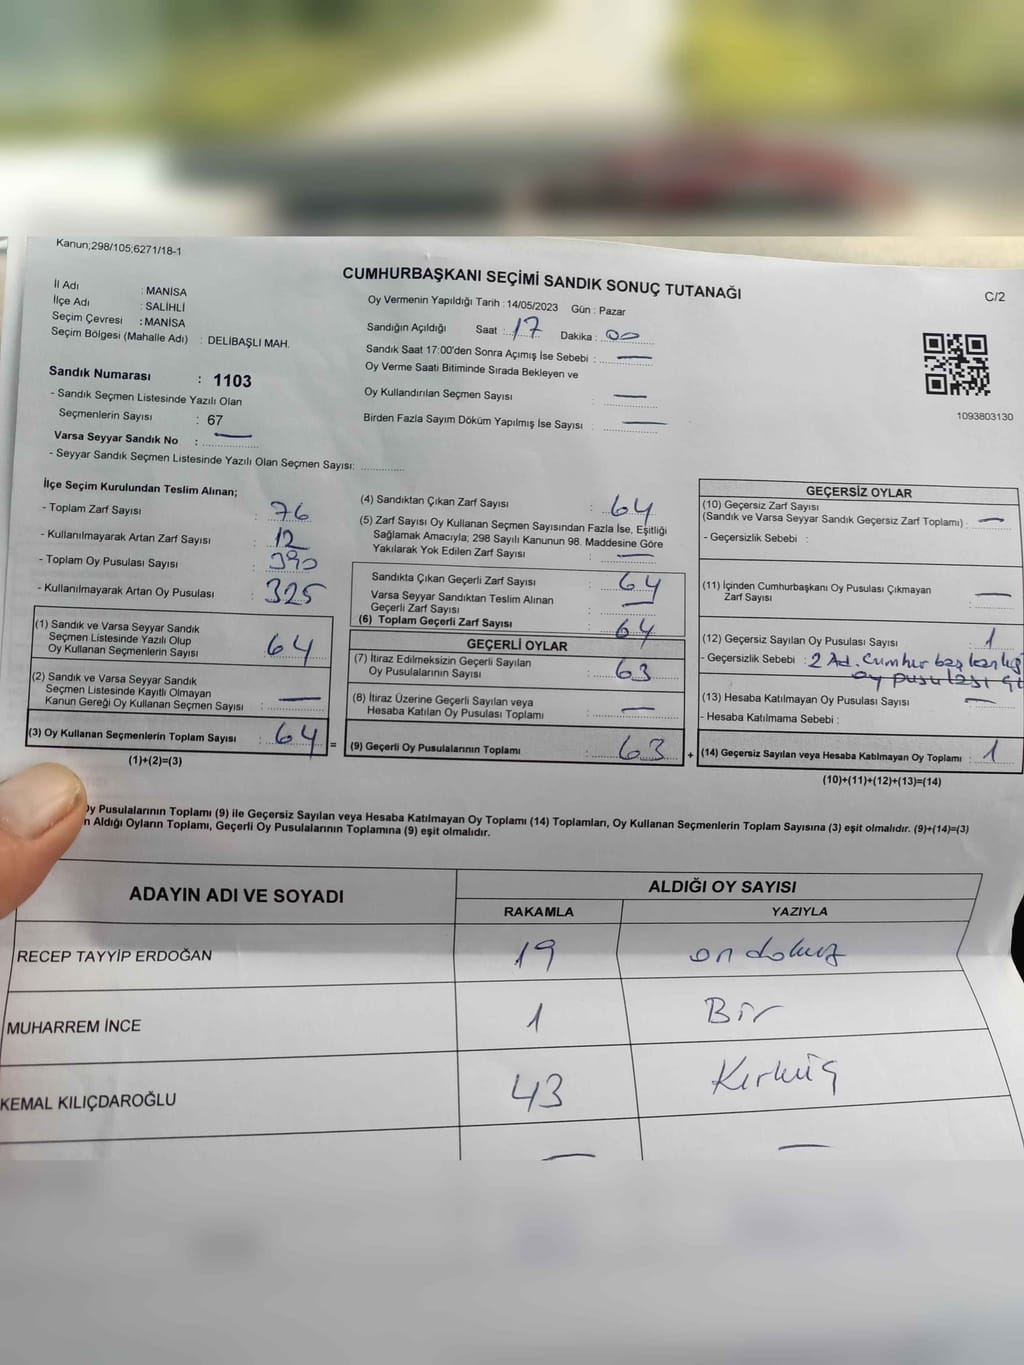 Kanun;298/105;6271/18-1
CUMHURBAŞKANI SEÇİMİ SANDIK SONUÇ TUTANAĞI
C/2
İl Adı : MANİSA
İlçe Adı : SALİHLİ
Seçim Çevresi : MANİSA
Seçim Bölgesi (Mahalle Adı) : DELİBAŞLI MAH.
Sandık Numarası : 1103
- Sandık Seçmen Listesinde Yazılı Olan
Seçmenlerin Sayısı : 67
Varsa Seyyar Sandık No : —
- Seyyar Sandık Seçmen Listesinde Yazılı Olan Seçmen Sayısı:
Oy Vermenin Yapıldığı Tarih : 14/05/2023 Gün : Pazar
Sandığın Açıldığı Saat : 17 Dakika : 00
Sandık Saat 17:00'den Sonra Açımış İse Sebebi : —
Oy Verme Saati Bitiminde Sırada Bekleyen ve
Oy Kullandırılan Seçmen Sayısı : —
Birden Fazla Sayım Döküm Yapılmış İse Sayısı : —
1093803130
İlçe Seçim Kurulundan Teslim Alınan;
- Toplam Zarf Sayısı : 76
- Kullanılmayarak Artan Zarf Sayısı : 12
- Toplam Oy Pusulası Sayısı : 390
- Kullanılmayarak Artan Oy Pusulası : 325
(1) Sandık ve Varsa Seyyar Sandık
Seçmen Listesinde Yazılı Olup
Oy Kullanan Seçmenlerin Sayısı : 64
(2) Sandık ve Varsa Seyyar Sandık
Seçmen Listesinde Kayıtlı Olmayan
Kanun Gereği Oy Kullanan Seçmen Sayısı : —
(3) Oy Kullanan Seçmenlerin Toplam Sayısı : 64 =
(1)+(2)=(3)
(4) Sandıktan Çıkan Zarf Sayısı : 64
(5) Zarf Sayısı Oy Kullanan Seçmen Sayısından Fazla İse, Eşitliği
Sağlamak Amacıyla; 298 Sayılı Kanunun 98. Maddesine Göre
Yakılarak Yok Edilen Zarf Sayısı : —
Sandıkta Çıkan Geçerli Zarf Sayısı : 64
Varsa Seyyar Sandıktan Teslim Alınan
Geçerli Zarf Sayısı : —
(6) Toplam Geçerli Zarf Sayısı : 64
GEÇERLİ OYLAR
(7) İtiraz Edilmeksizin Geçerli Sayılan
Oy Pusulalarının Sayısı : 63
(8) İtiraz Üzerine Geçerli Sayılan veya
Hesaba Katılan Oy Pusulası Toplamı : —
(9) Geçerli Oy Pusulalarının Toplamı : 63 +
GEÇERSİZ OYLAR
(10) Geçersiz Zarf Sayısı
(Sandık ve Varsa Seyyar Sandık Geçersiz Zarf Toplamı) : —
- Geçersizlik Sebebi :
(11) İçinden Cumhurbaşkanı Oy Pusulası Çıkmayan
Zarf Sayısı : —
(12) Geçersiz Sayılan Oy Pusulası Sayısı : 1
- Geçersizlik Sebebi : 2 Ad. Cumhur başkanlığı
oy pusulası
(13) Hesaba Katılmayan Oy Pusulası Sayısı : —
- Hesaba Katılmama Sebebi :
(14) Geçersiz Sayılan veya Hesaba Katılmayan Oy Toplamı : 1
(10)+(11)+(12)+(13)=(14)
Oy Pusulalarının Toplamı (9) ile Geçersiz Sayılan veya Hesaba Katılmayan Oy Toplamı (14) Toplamları, Oy Kullanan Seçmenlerin Toplam Sayısına (3) eşit olmalıdır. (9)+(14)=(3)
n Aldığı Oyların Toplamı, Geçerli Oy Pusulalarının Toplamına (9) eşit olmalıdır.
ADAYIN ADI VE SOYADI
ALDIĞI OY SAYISI
RAKAMLA YAZIYLA
RECEP TAYYİP ERDOĞAN 19 on dokuz
MUHARREM İNCE 1 Bir
KEMAL KILIÇDAROĞLU 43 Kırküç
— —